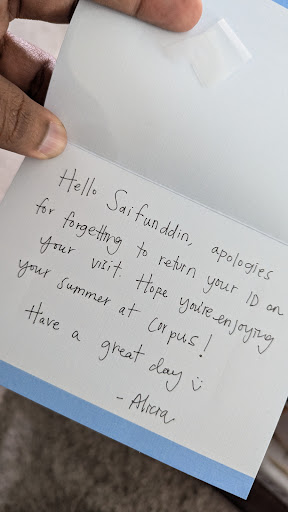 Hello Saifunddin, apologies
for forgetting to return your ID on
your visit. Hope you're enjoying
your summer at Corpus!
Have a great day :)
- Alicia